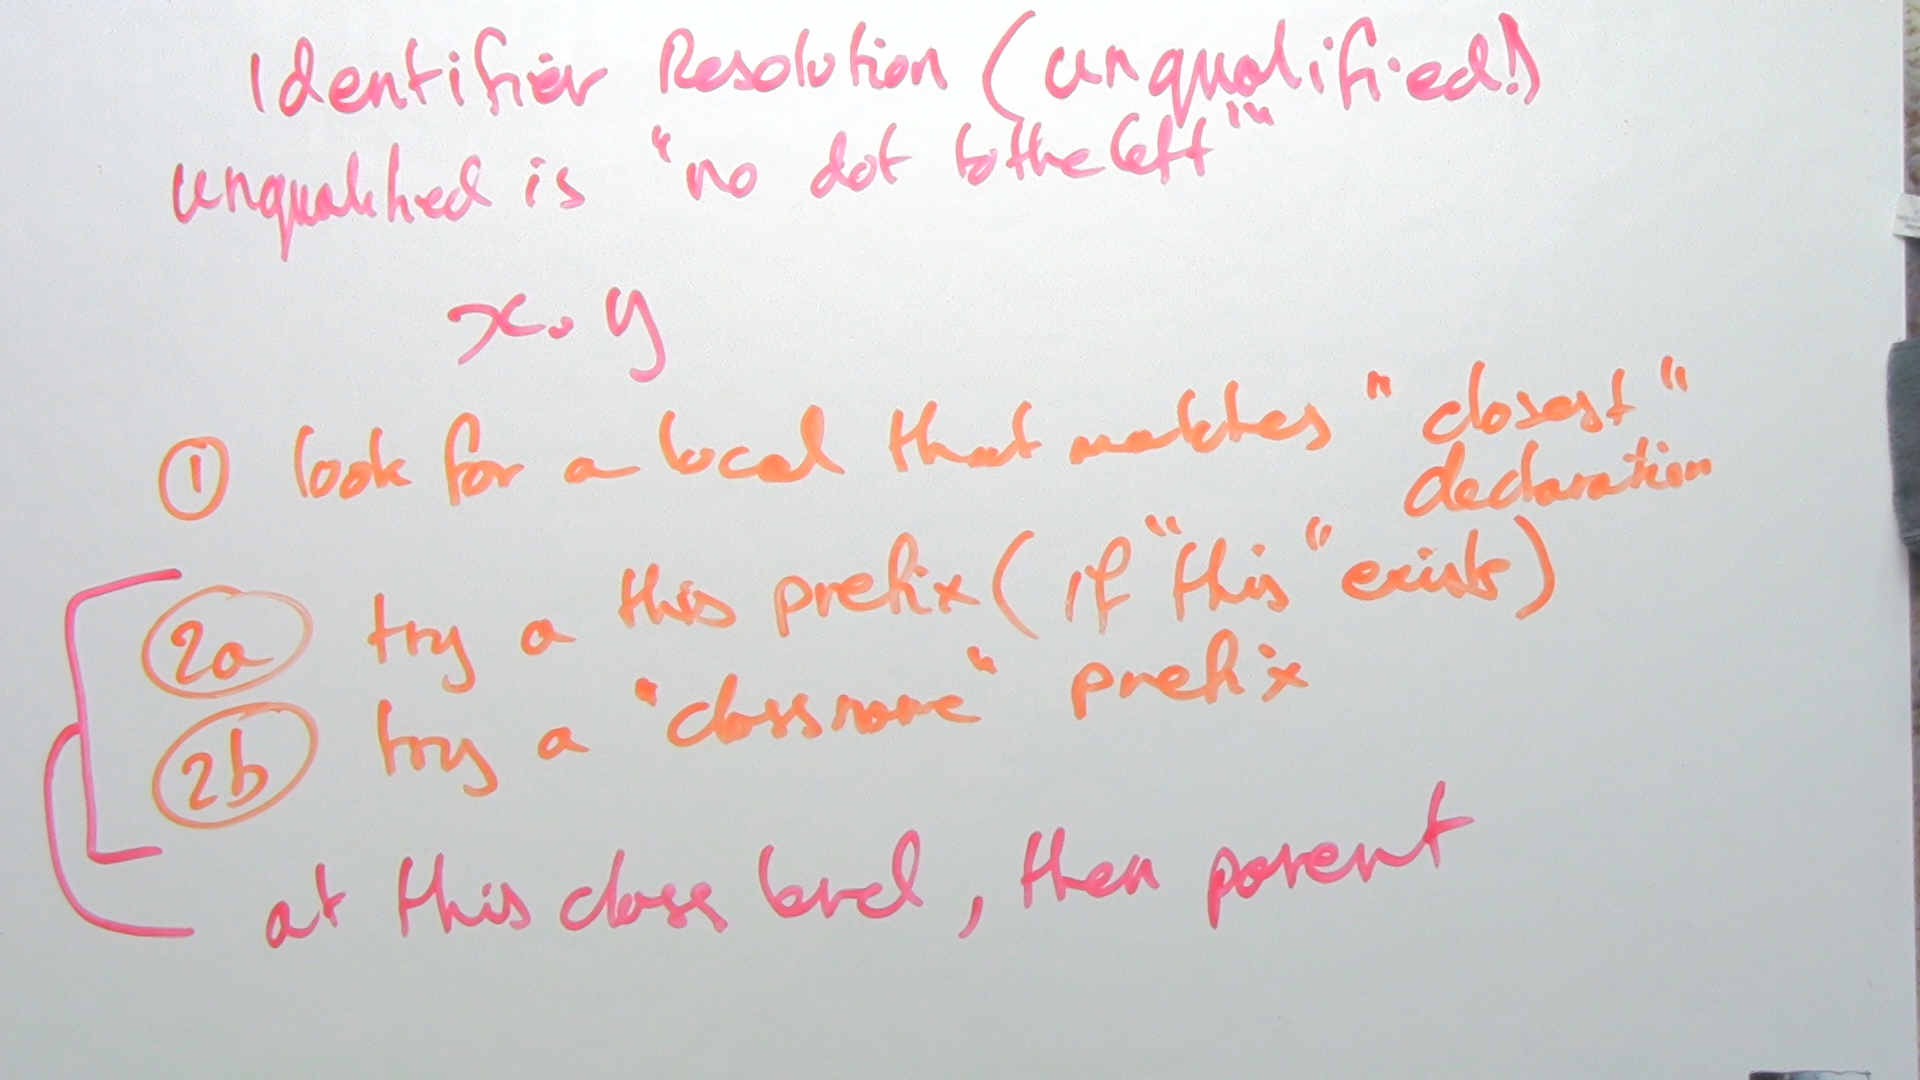 Identifier Resolution (unqualified!)
unqualified is "no dot to the left"
x.y
① look for a local that matches "closest"
declaration
2a try a this prefix (if "this" exists)
2b try a "classname" prefix
at this class level, then parent